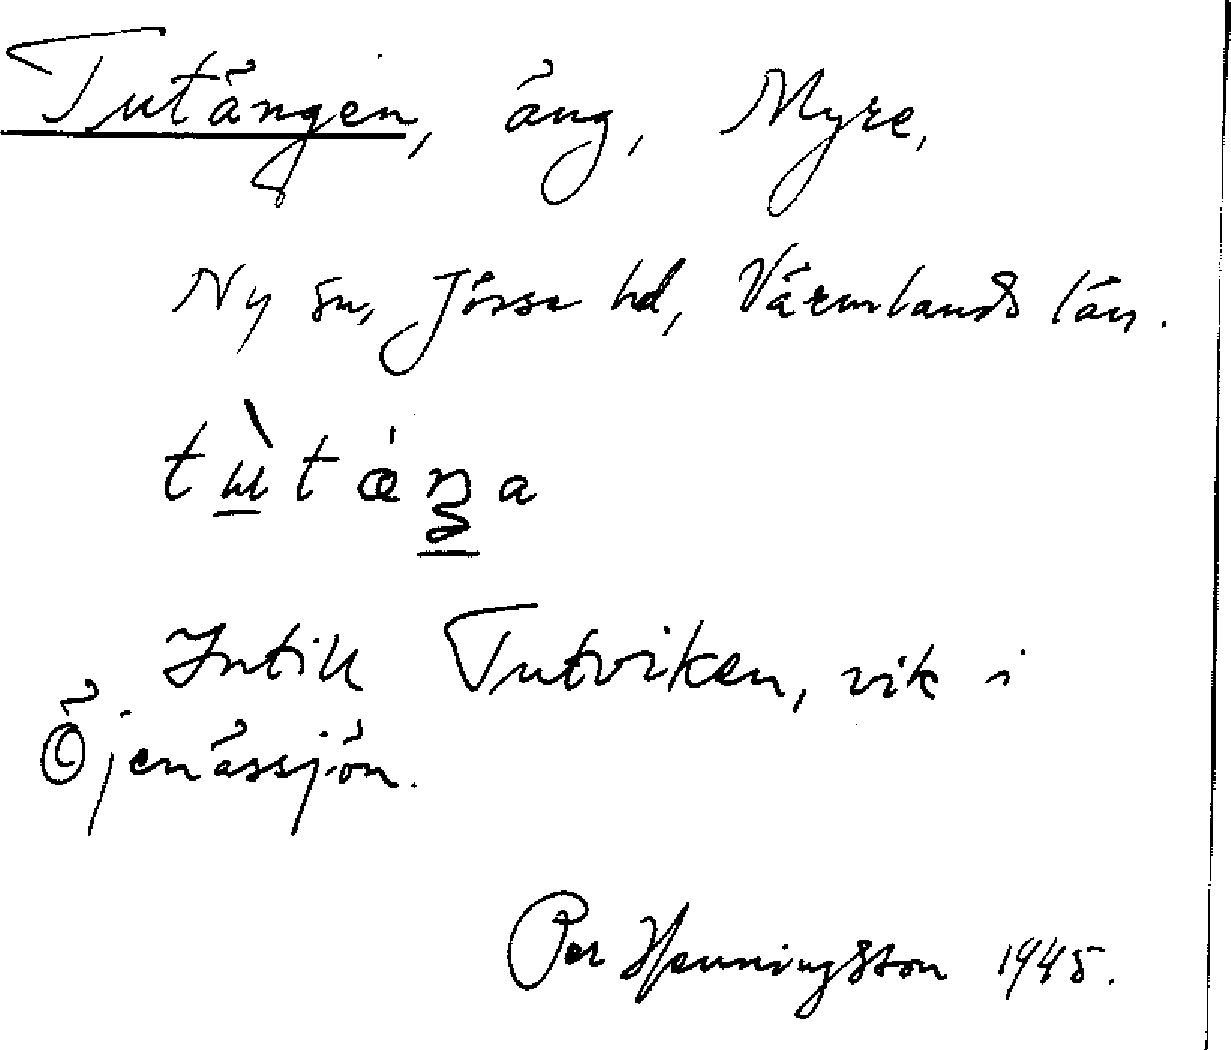 Tutängen, äng, Myre,
Ny sn, Jösse hd, Värmlands län.
Intill Tutviken, vik i
Öjenässjön.
Per Henningsson 1945.